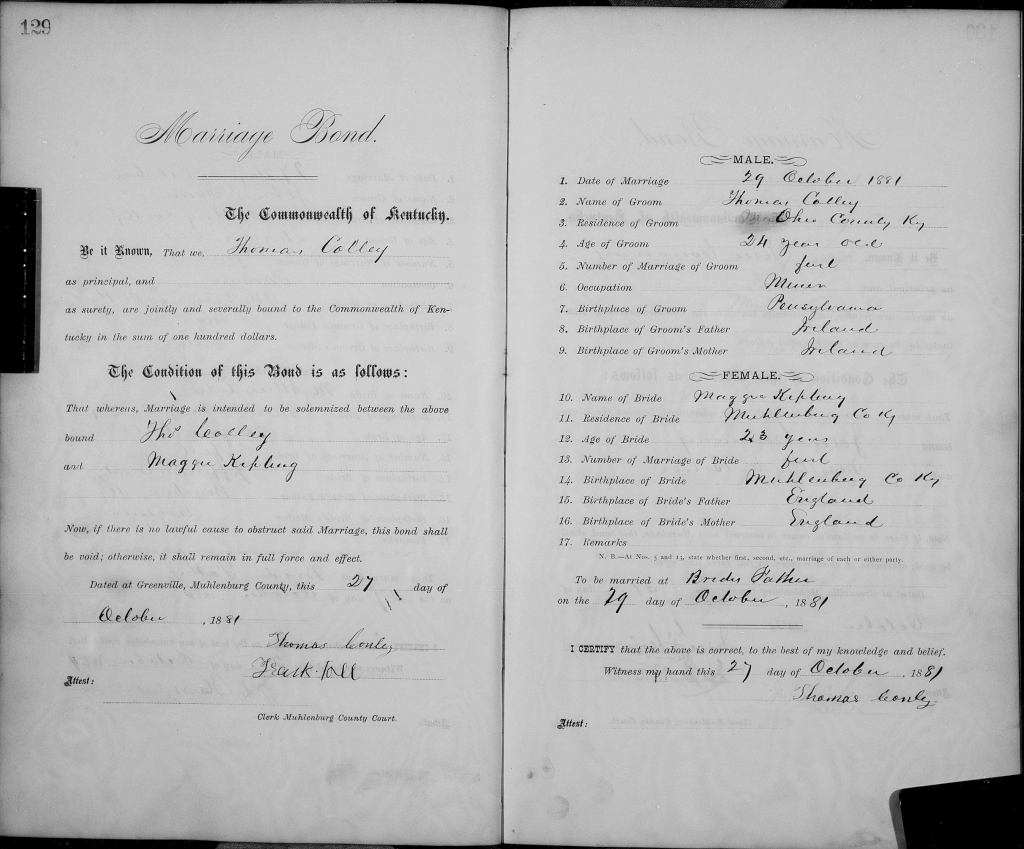 129
Marriage Bond.
The Commonwealth of Kentucky.
Be it Known, That we, Thomas Colley
as principal, and
as surety, are jointly and severally bound to the Commonwealth of Ken-
tucky in the sum of one hundred dollars.
The Condition of this Bond is as follows:
That whereas, Marriage is intended to be solemnized between the above
bound Thos Colley
and Maggie Kipling
Now, if there is no lawful cause to obstruct said Marriage, this bond shall
be void; otherwise, it shall remain in full force and effect.
Dated at Greenville, Muhlenburg County, this 27 day of
October, 1881
Thomas Conley
Frank
Attest:
Clerk Muhlenburg County Court.
MALE.
1. Date of Marriage 29 October 1881
2. Name of Groom Thomas Colley
3. Residence of Groom Ohio County Ky
4. Age of Groom 24 year old
5. Number of Marriage of Groom first
6. Occupation Miner
7. Birthplace of Groom Pensylvania
8. Birthplace of Groom's Father Ireland
9. Birthplace of Groom's Mother Ireland
FEMALE.
10. Name of Bride Maggie Kipling
11. Residence of Bride Muhlenburg Co Ky
12. Age of Bride 23 years
13. Number of Marriage of Bride first
14. Birthplace of Bride Muhlenburg Co Ky
15. Birthplace of Bride's Father England
16. Birthplace of Bride's Mother England
17. Remarks
N. B.—At Nos. 5 and 13, state whether first, second, etc., marriage of each or either party.
To be married at Brides Father
on the 29 day of October, 1881
I CERTIFY that the above is correct, to the best of my knowledge and belief.
Witness my hand this 27 day of October, 1881
Thomas Conley
Attest: